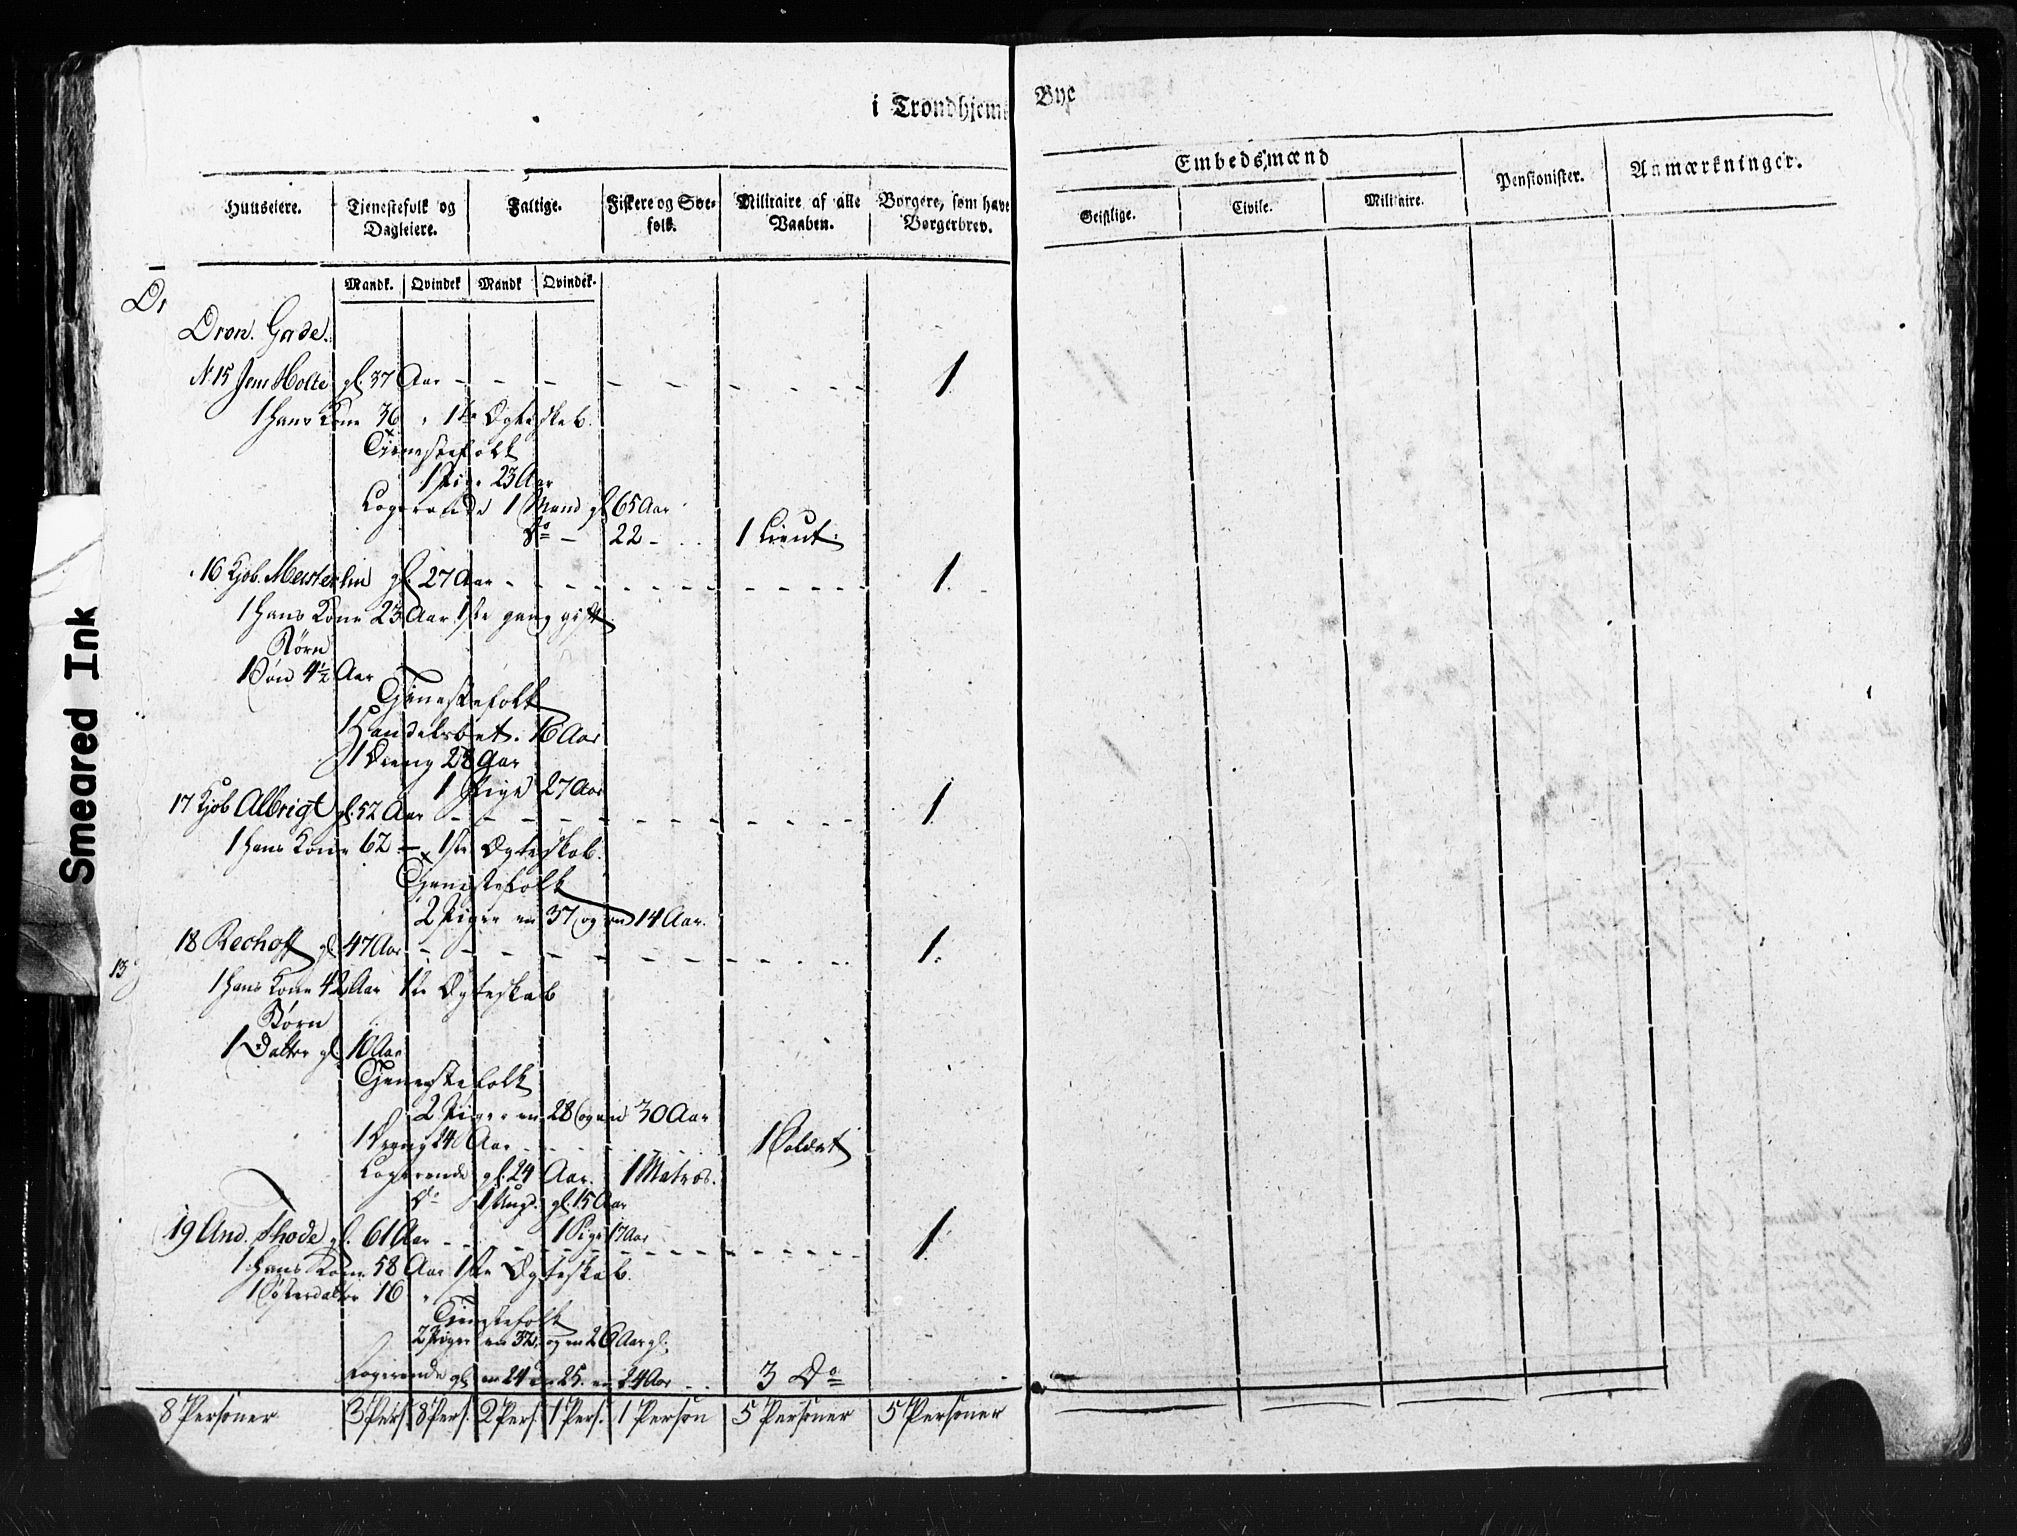 i Trondhjems Bye
Huuseiere. Tjenestefolk og Dagleiere. Fattige. Fiskere og Søefolk. Militaire af alle Vaaben. Borgere, som have Borgerbrev. Embedsmænd Pensionister. Anmærkninger.
Geistlige. Civile. Militaire.
Mandk. Qvindek Mandk Qvindek.
Dron. Gade.
N 15 Jens Holte gl. 37 Aar - - - 1
1 Hans Kone 36 " 1te Ægteskab.
Tienestefolk
1 Pige 23 Aar
Logerende 1 Mand gl 65 Aar
Do - 22 - 1 Lieut.
16 Kjøb. Meisterlin gl. 27 Aar - - - 1.
1 Hans Kone 23 Aar 1ste gang gift
Børn
1 Søn 4½ Aar
Tjenestefolk
1 Handelsbet. 16 Aar
1 Dreng 28 Aar
1 Pige 27 Aar
17 Kjøb Albrigt gl. 52 Aar - - - 1
1 Hans Kone 62 - 1ste Ægteskab.
Tjenestefolk
2 Piger en 37 og en 14 Aar.
18 Rechoff gl. 47 Aar - - - 1.
13
1 Hans Kone 42 Aar 1te Ægteskab
Børn
1 Datter gl. 10 Aar
Tjenestefolk
2 Piger en 28 og en 30 Aar
1 Dreng 24 Aar - - - 1 Soldat
Logerende gl. 24 Aar. 1 Matros.
Do 1 Ungd. gl. 15 Aar
1 Pige 17 Aar
19 And. Rhode gl. 61 Aar - - - 1
1 Hans Kone 58 Aar 1ste Ægteskab.
1 Søsterdatter 16 "
Tjenestefolk
2 Piger en 32, og en 26 Aar gl.
Logerende gl en 24 en 25. en 24 Aar - . 3 Do
8 Personer 3 Pers. 8 Pers. 2 Pers. 1 Pers. 1 Person 5 Personer 5 Personer
Smeared Ink